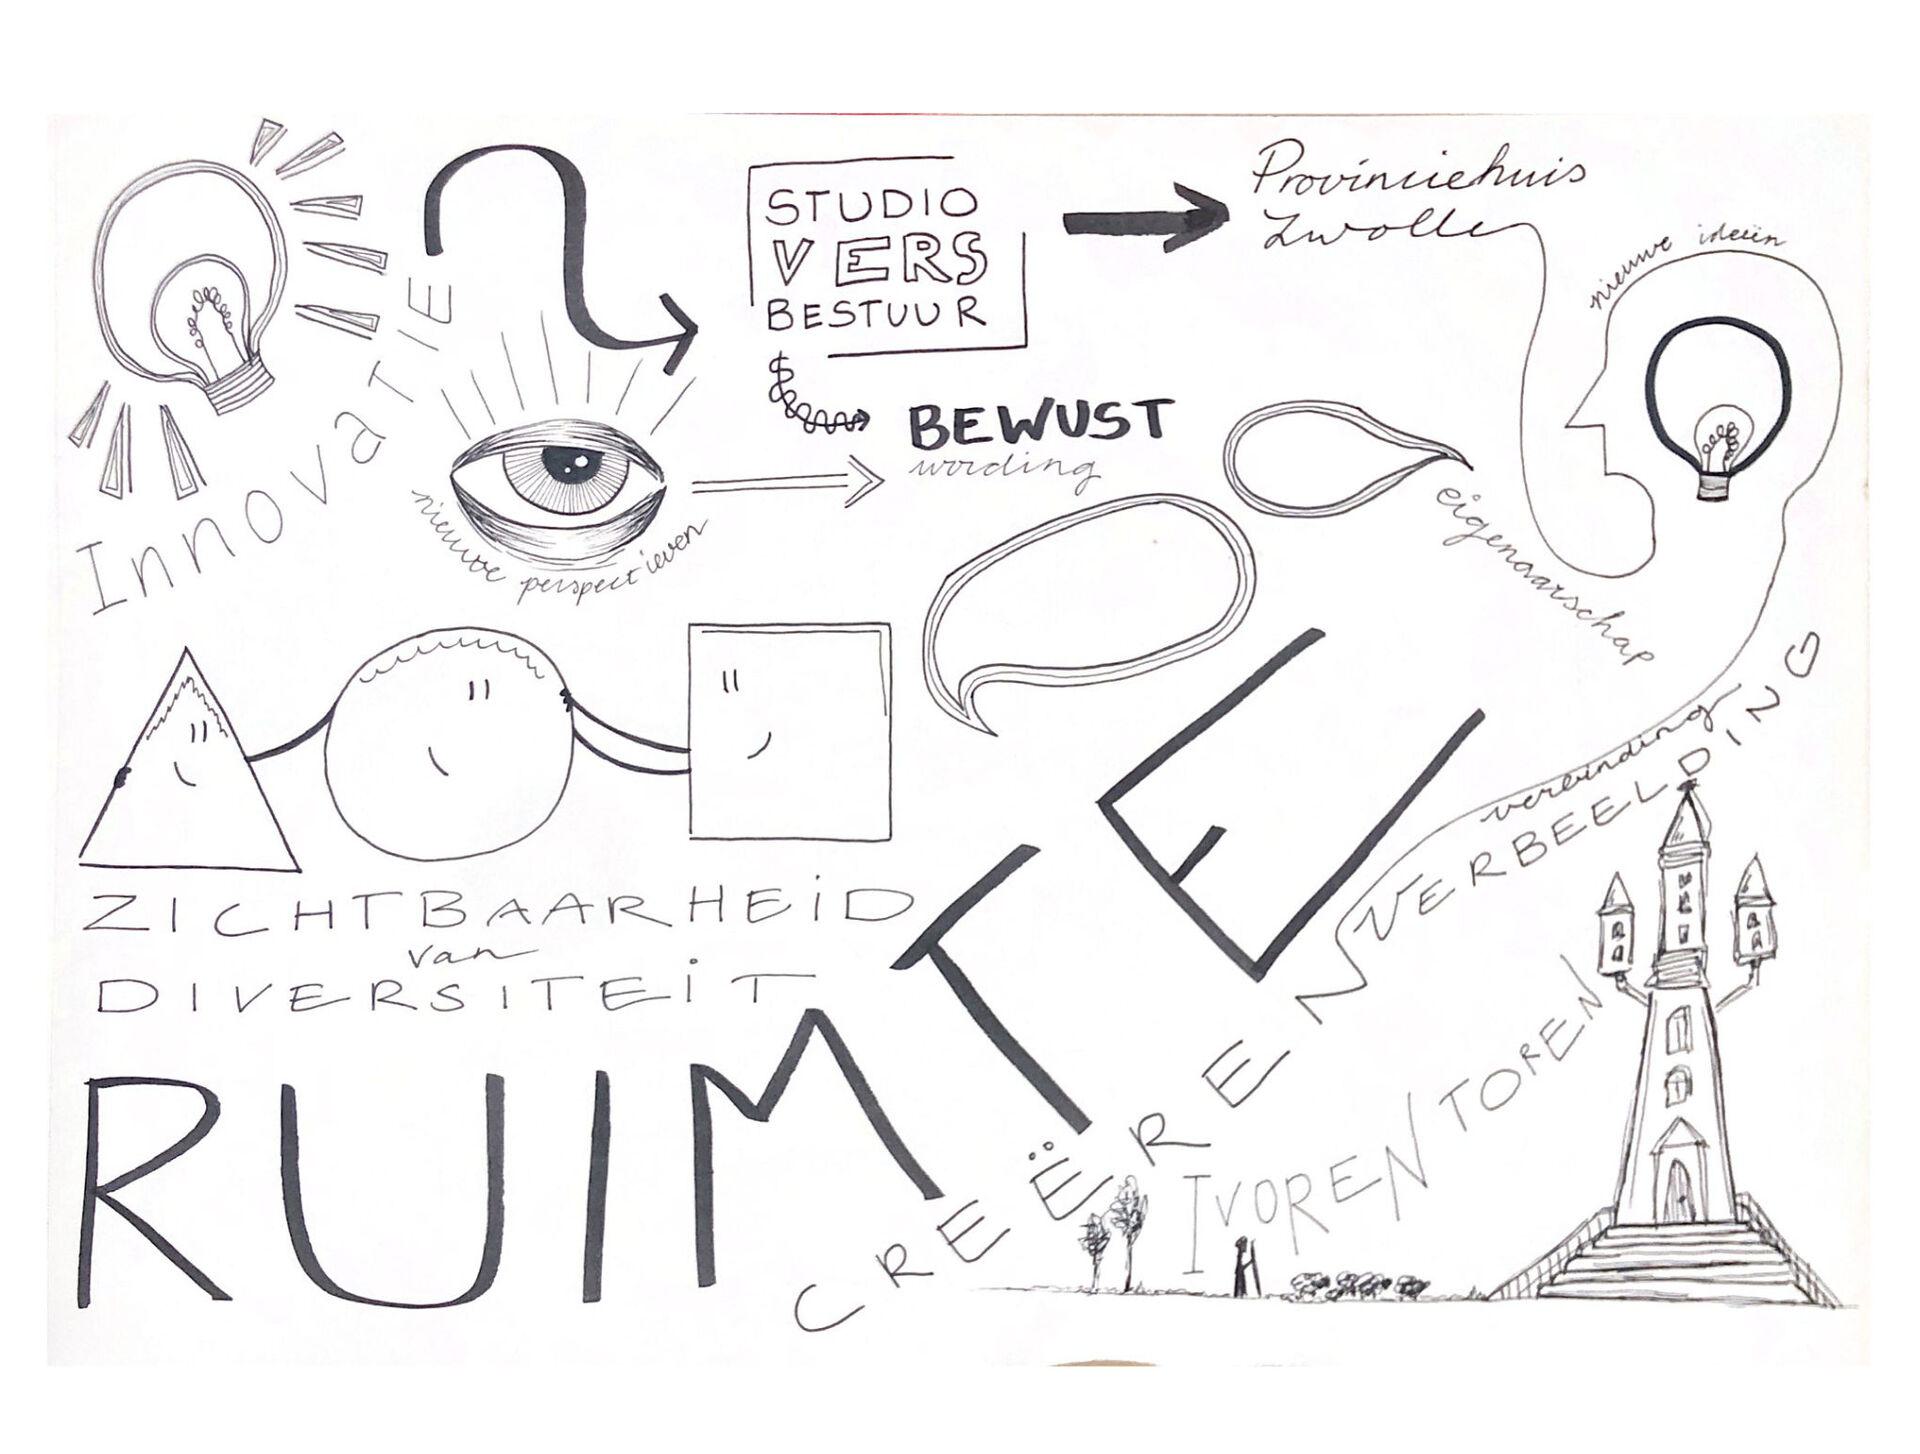 Innovatie
STUDIO
VERS
BESTUUR
Provinciehuis
Zwolle
nieuwe ideeën
BEWUST
wording
nieuwe perspectieven
eigenaarschap
verbinding
VERBEELDING
ZICHTBAARHEID
van
DIVERSITEIT
RUIMTE
CREËREN
IVOREN TOREN